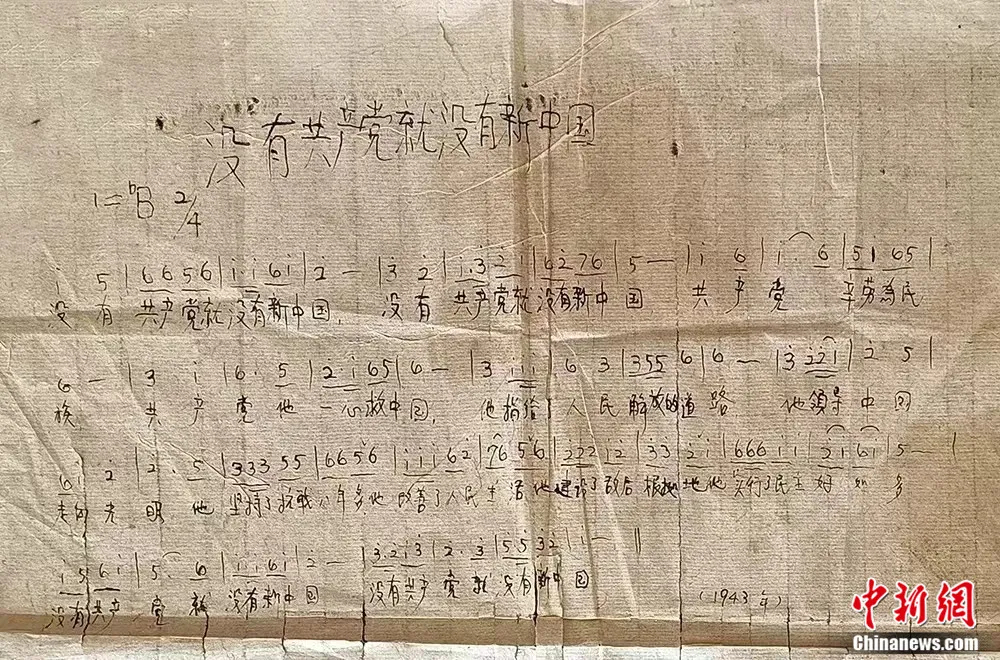 没有共产党就没有新中国
1=♭B 2/4
i 5 | 6 6 5 6 | i i 6 i | 2 — | 3 2 | i. 3 2 i | 6 2 7 6 | 5 — | i 6 | i. 6 | 5 1 6 5 |
没有共产党就没有新中国，没有共产党就没有新中国 共产党 辛劳為民
6 — | 3 i | 6. 5 | 2. i 6 5 | 6 — | 3 i i | 6 3 | 3 5 5 6 | 6 — | 3 2 2 i | 2 5 |
族 共产党他一心救中国，他指给了人民解放的道路 他領导中国
6 i 2 | 2. 5 | 3 3 3 5 5 | 6 6 5 6 | i i i 6 2 | 7 6 5 6 | 2 2 2 i 2 | 3 3 2 i | 6 6 6 i i | 2 i 6 i | 5 — |
走向光明 他坚持了抗战八年多他改善了人民生活他建设了敌后根据地他实行了民主好 如 多
i 5 6 i | 5. 6 | i i 6 i | 2 — | 3. 2 i 3 | 2. 3 | 5 5 3 2 | i — ‖
没有共产党就没有新中国 没有共产党就没有新中国
（1943年）
中新网
Chinanews.com